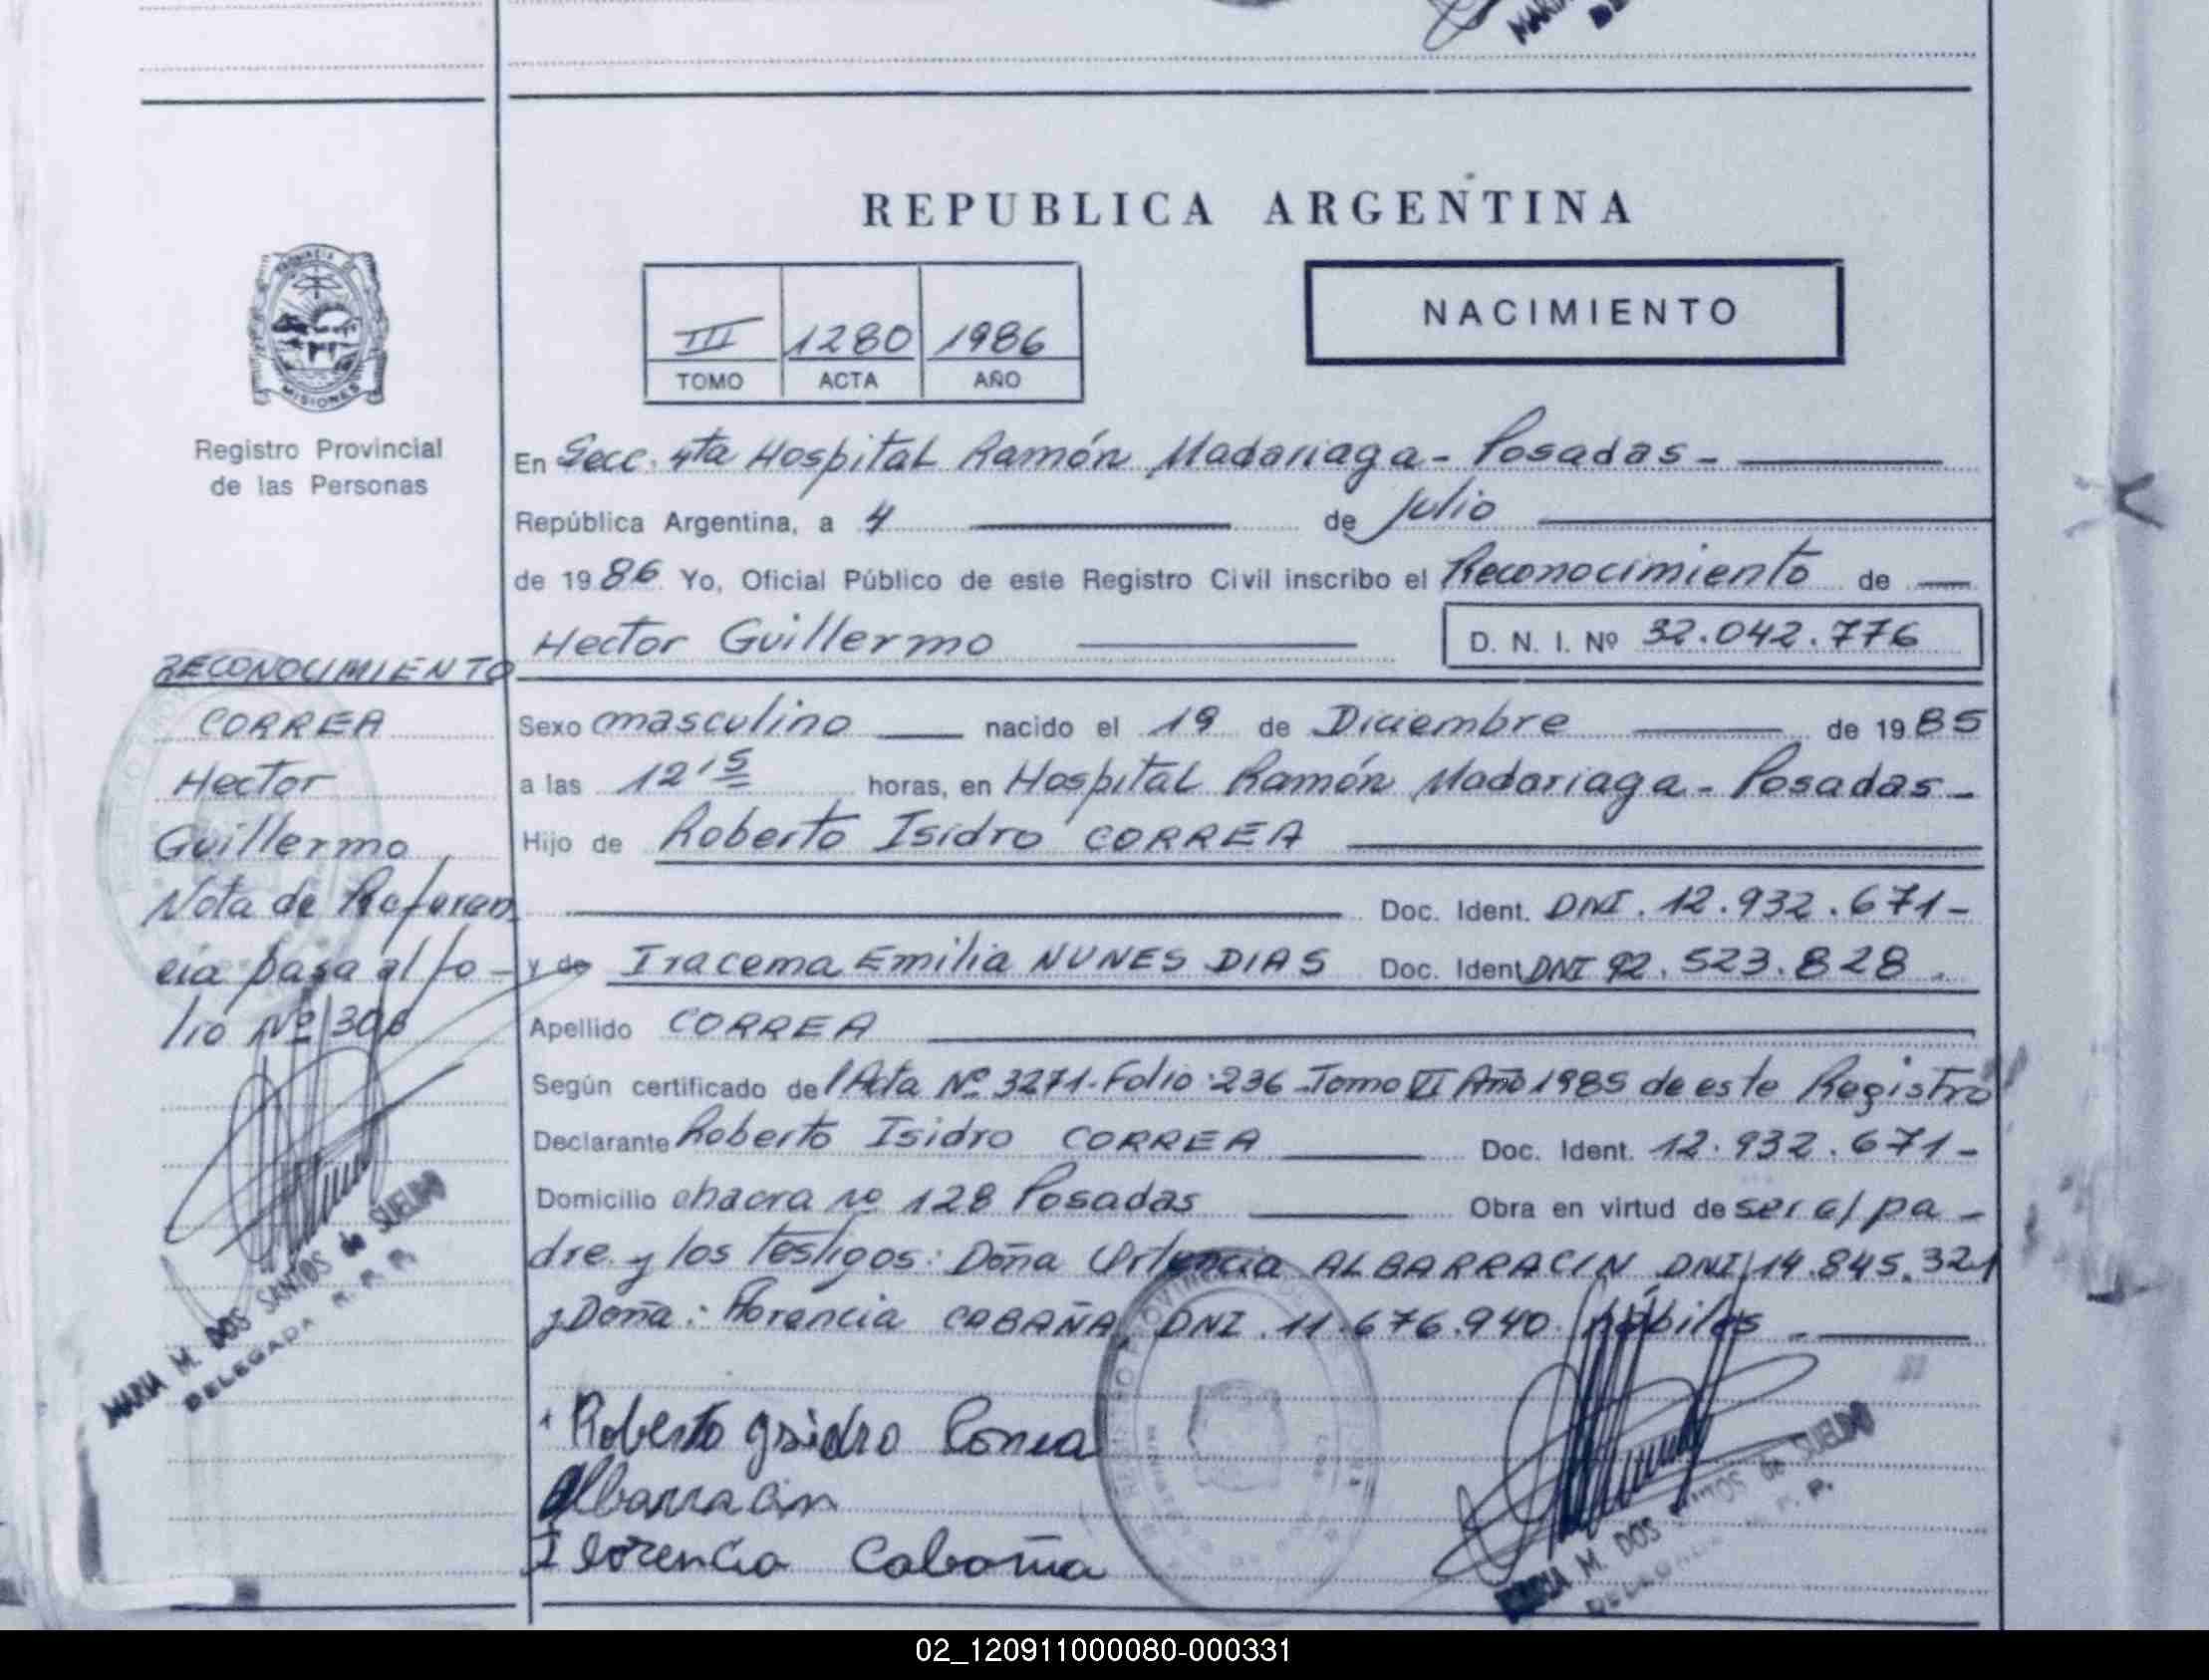 MARIA
DE
REPUBLICA ARGENTINA
PROVINCIA DE
MISIONES
Registro Provincial
de las Personas
III 1280 1986
TOMO ACTA AÑO
NACIMIENTO
En Secc. 4ta Hospital Ramón Madariaga - Posadas -
República Argentina, a 4 de Julio
de 1986 Yo, Oficial Público de este Registro Civil inscribo el Reconocimiento de
Hector Guillermo D. N. I. Nº 32.042.776
RECONOCIMIENTO
CORREA
Hector
Guillermo
Nota de Referen
cia pasa al fo-
lio Nº 306
MARIA M. DOS SANTOS de SUELDO
DELEGADA R. P. P.
Sexo masculino nacido el 19 de Diciembre de 1985
a las 12'15 horas, en Hospital Ramón Madariaga - Posadas -
Hijo de Roberto Isidro CORREA
Doc. Ident. DNI. 12.932.671-
y de Iracema Emilia NUNES DIAS Doc. Ident DNI 92.523.828.
Apellido CORREA
Según certificado del Acta Nº 3271-Folio 236-Tomo VI Año 1985 de este Registro
Declarante Roberto Isidro CORREA Doc. Ident. 12.932.671-
Domicilio chacra nº 128 Posadas Obra en virtud de ser el pa-
dre y los testigos: Doña Urtencia ALBARRACIN DNI 14.845.321
y Doña: Florencia CABAÑA, DNI. 11.676.940. hábiles.
Roberto Ysidro Correa
Albarracin
Florencia Cabaña
MARIA M. DOS SANTOS de SUELDO
DELEGADA R. P. P.
02_120911000080-000331